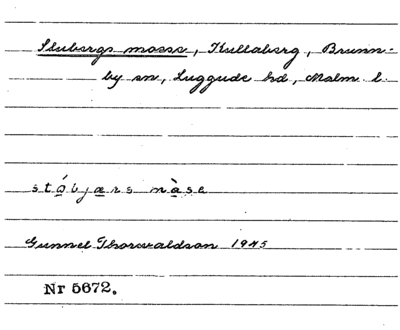 Stubergs mosse, Kullaberg, Brunn-
by sn, Luggude hd, Malm. l.
Gunnel Thorwaldson 1945
Nr 5672.